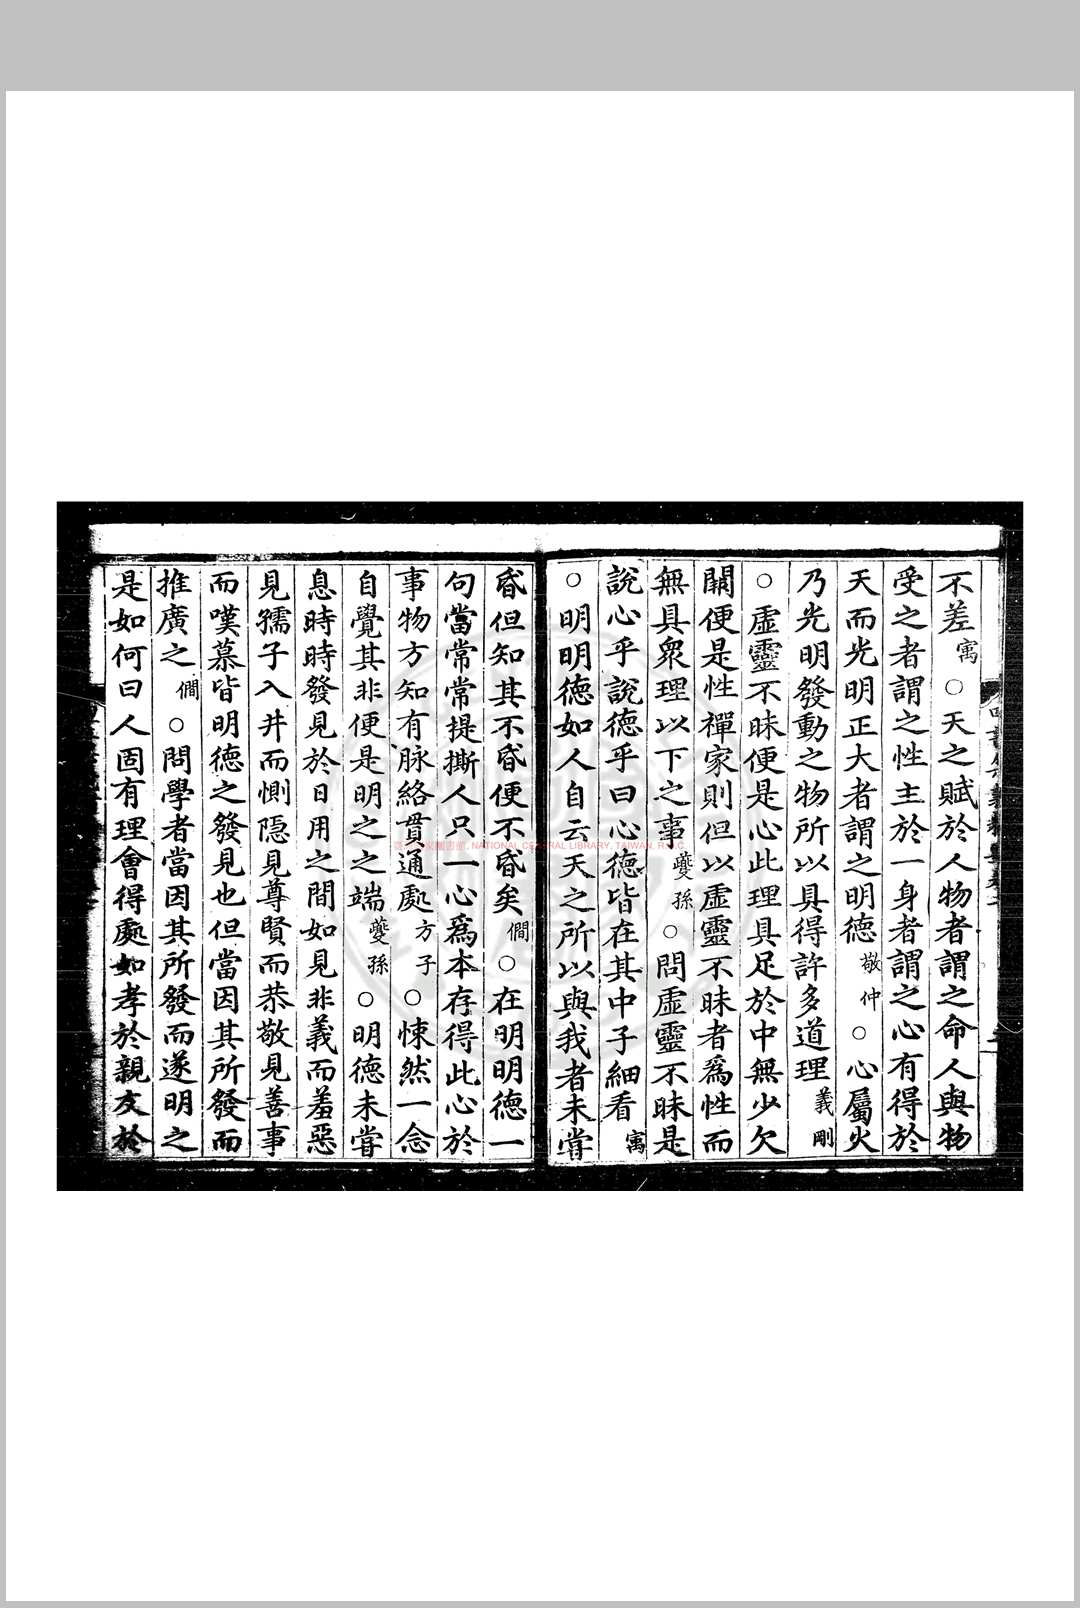 不差㝢○天之賦於人物者謂之命人與物
受之者謂之性主於一身者謂之心有得於
天而光明正大者謂之明德敬仲○心屬火
乃光明發動之物所以具得許多道理義剛
○虛靈不昧便是心此理具足於中無少欠
闕便是性禪家則但以虛靈不昧者爲性而
無具衆理以下之事夔孫○問虛靈不昧是
說心乎說德乎曰心德皆在其中子細看㝢
○明明德如人自云天之所以與我者未嘗
昏但知其不昏便不昏矣僩○在明明德一
句當常常提撕人只一心爲本存得此心於
事物方知有脉絡貫通處方子○悚然一念
自覺其非便是明之之端夔孫○明德未嘗
息時時發見於日用之間如見非義而羞惡
見孺子入井而惻隱見尊賢而恭敬見善事
而嘆慕皆明德之發見也但當因其所發而
推廣之僩○問學者當因其所發而遂明之
是如何曰人固有理會得處如孝於親友於
NATIONAL CENTRAL LIBRARY, TAIWAN, R.O.C.